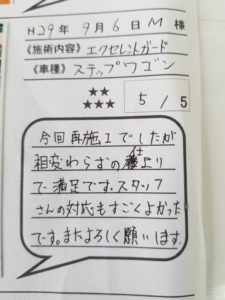 H29年 9月 6日 M 様
《施術内容》 エクセレントガード
《車種》 ステップワゴン
★★
★★★
5 / 5
今回再施工でしたが
相変わらずの仕上り
で満足です。スタッフ
さんの対応もすごくよかった
です。またよろしく願います。